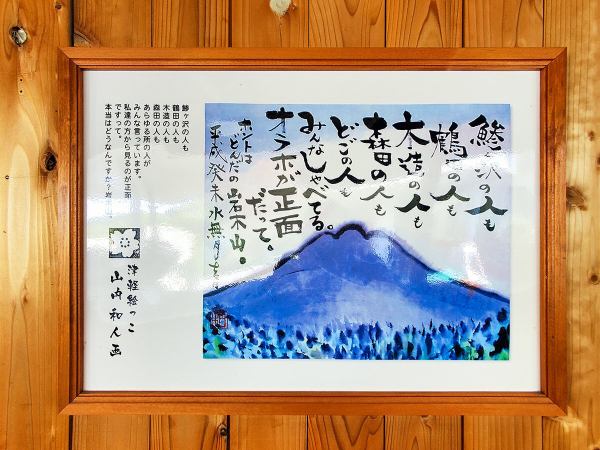 鰺ヶ沢の人も
鶴田の人も
木造の人も
森田の人も
どこの人も
みんなしゃべてる。
オラホが正面
だって。
ホントは
どんだの岩木山。
平成癸未水無月
鰺ヶ沢の人も
鶴田の人も
木造の人も
森田の人も
あらゆる所の人が
みんな言っています。
私達の方から見るのが正面
ですって。
本当はどうなんですか?岩
津軽絵っこ
山内和人画